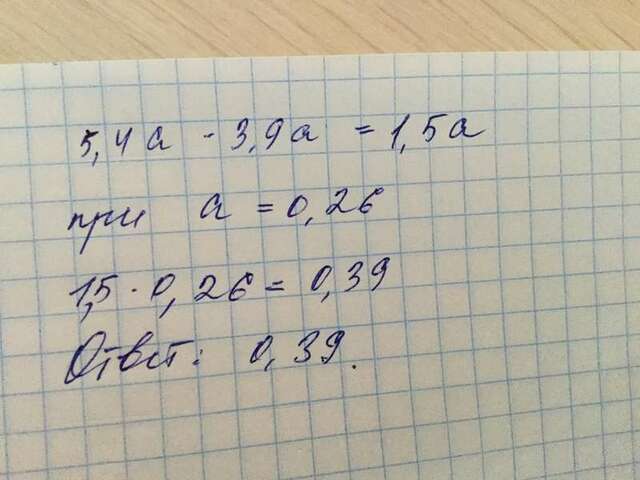 5,4a - 3,9a = 1,5a
при a = 0,26
1,5 · 0,26 = 0,39
Ответ: 0,39.